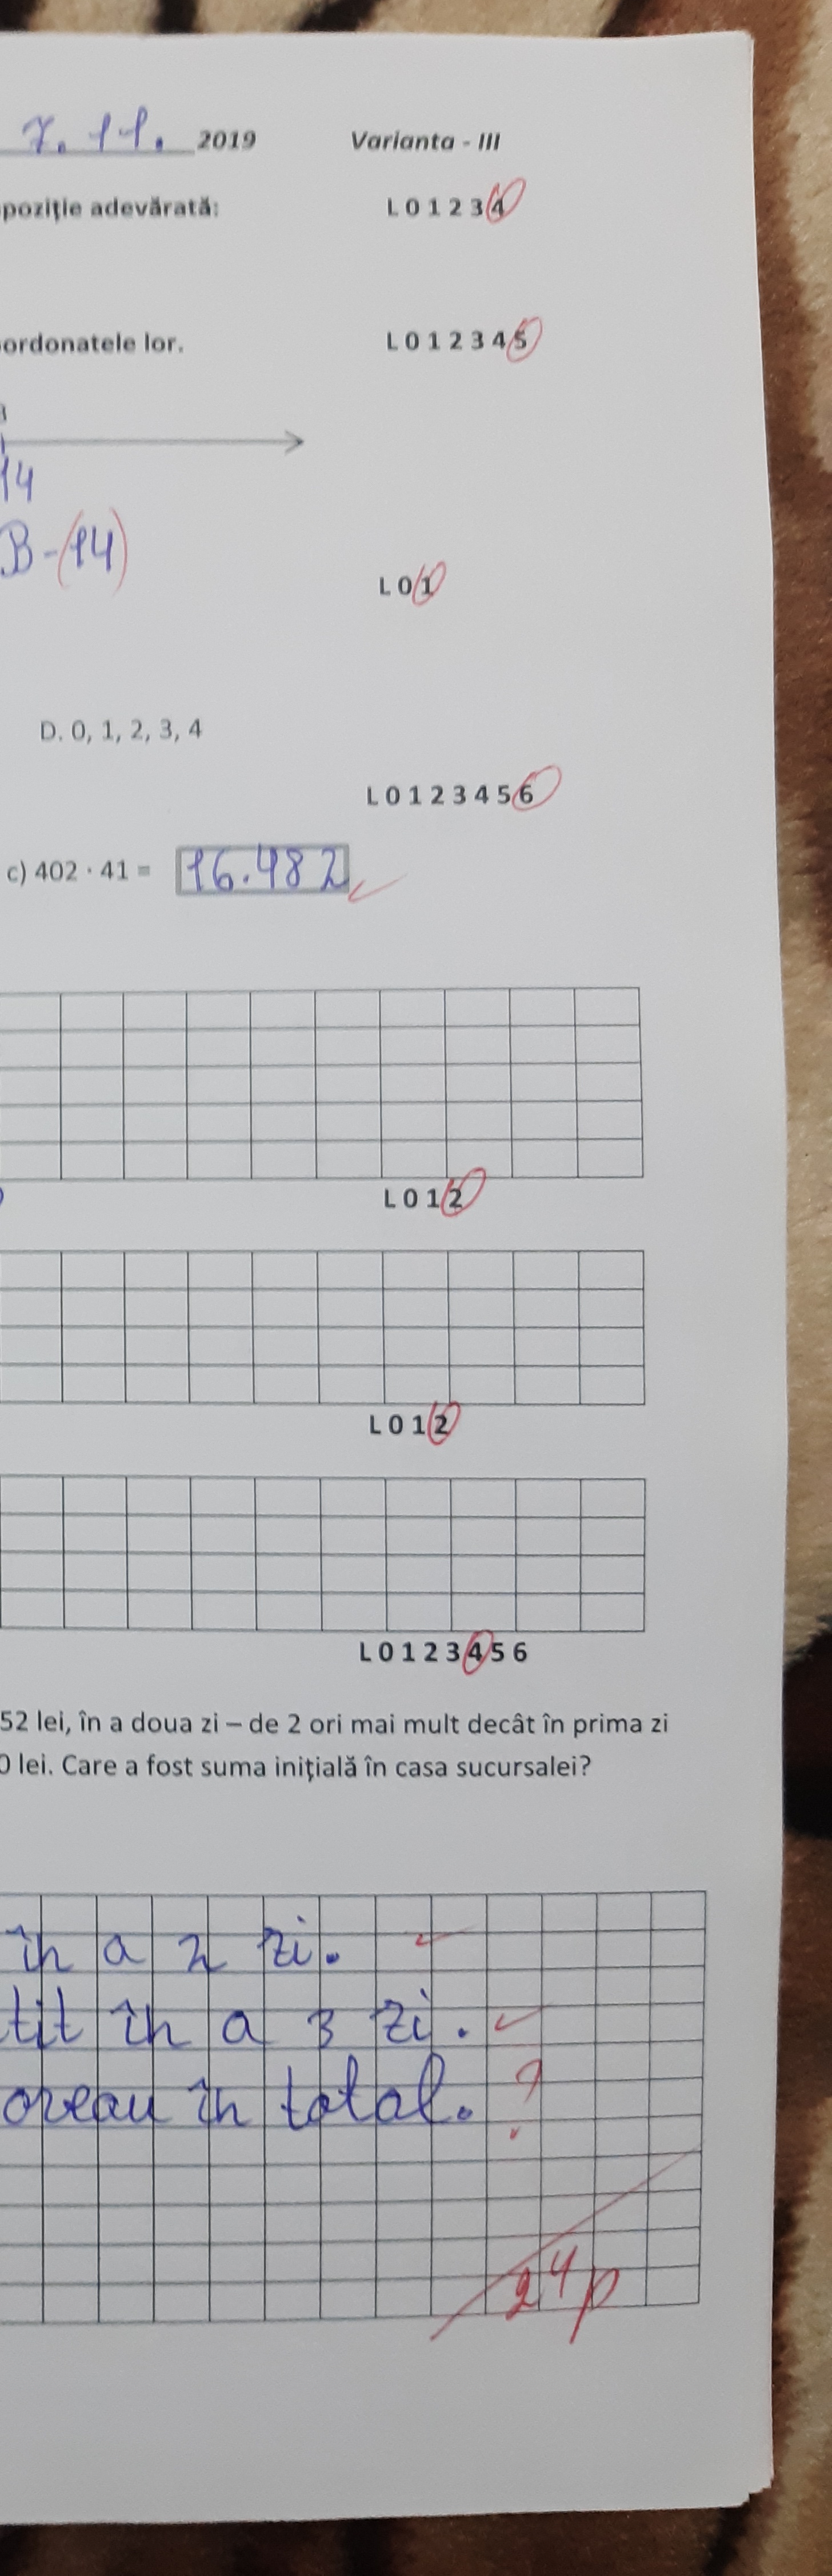 7.11. 2019 Varianta - III
poziție adevărată: L 0 1 2 3 4
ordonatele lor. L 0 1 2 3 4 5
14
B-(14)
L 0 1
D. 0, 1, 2, 3, 4
L 0 1 2 3 4 5 6
c) 402 · 41 = 16.482
L 0 1 2
L 0 1 2
L 0 1 2 3 4 5 6
52 lei, în a doua zi – de 2 ori mai mult decât în prima zi
0 lei. Care a fost suma inițială în casa sucursalei?
în a 2 zi.
tit în a 3 zi.
oreau în total. ?
24p